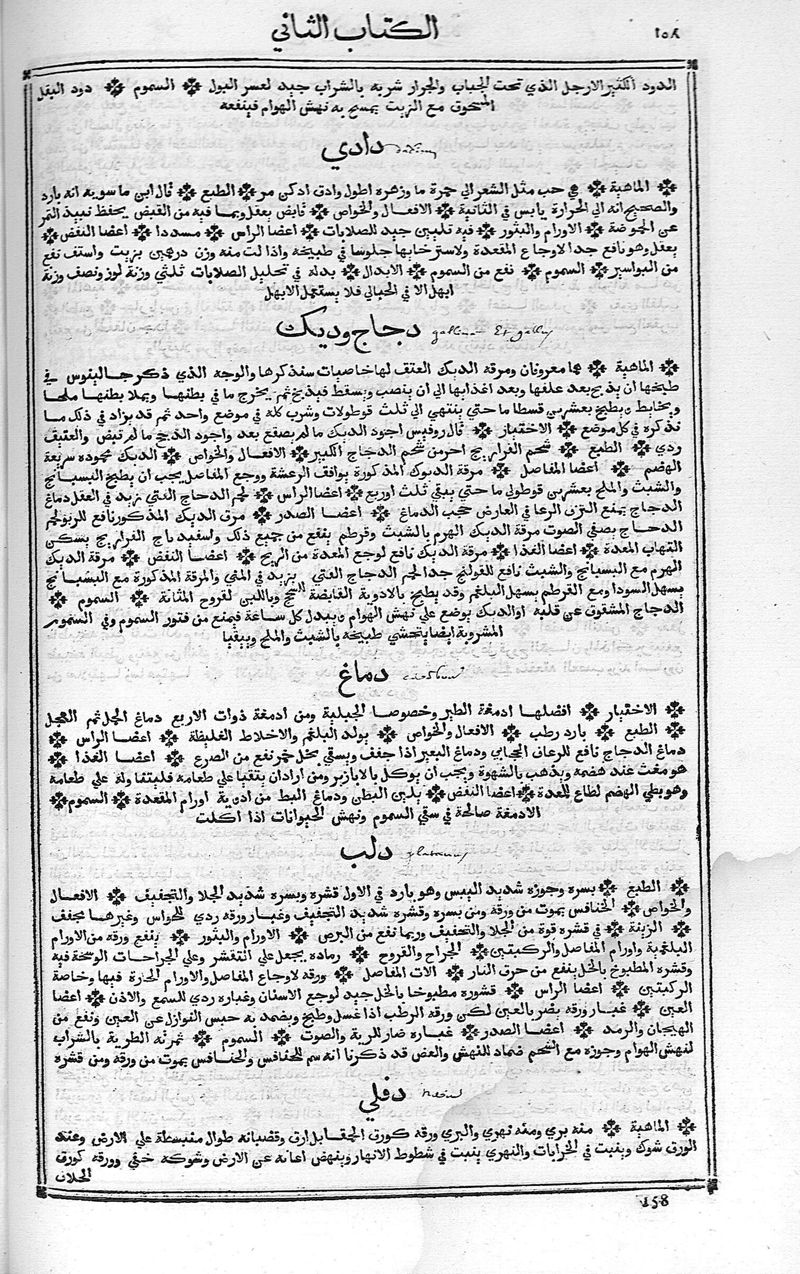 ١٥٨
الكتاب الثاني
الدود الكثير الارجل الذي تحت الحباب والجرار شربه بالشراب جيد لعسر البول السموم دود البقل
المسحوق مع الزيت يمسح به نهش الهوام فينفعه
دادي
الماهية هي حب مثل الشعير الي حمرة ما وزهره اطول وادق ادكن مر الطبع قال ابن ماسويه انه بارد
والصحيح انه الي الحرارة يابس في الثانية الافعال والخواص قابض يعقل وبما فيه من القبض يحفظ نبيذ التمر
عن الحموضة الاورام والبثور فيه تليين جيد للصلابات اعضا الراس مسدد اعضا النفض
يعقل وهو نافع جدا لاوجاع المقعدة ولاسترخايها جلوسا في طبيخه واذا لت منه وزن درهمين بزيت واستف نفع
من البواسير السموم نفع من السموم الابدال بدله في تحليل الصلابات ثلثي وزنه لوز ونصف وزنه
ابهل الا في الحبالي فلا يستعمل الابهل
دجاج وديك gallina Et gallus
الماهية هما معروفان ومرقة الديك العتق لها خاصيات سنذكرها والوجه الذي ذكر جالينوس في
طبخها ان يذبح بعد علفها وبعد اغذايها الي ان ينصب ويسقط فيذبح ثم يخرج ما في بطنها ويملا بطنها ملحا
ويخاط ويطبخ بعشرين قسطا ما حتي ينتهي الي ثلث قوطولات وشرب كله في موضع واحد ثم قد يزاد في ذلك ما
نذكره في كل موضع الاختيار قال روفيس اجود الديك ما لم يصقع بعد واجود الدجج ما لم تبض والعتيق
ردي الطبع شحم الفراريج احر من شحم الدجاج الكبير الافعال والخواص الديك محموده سريعة
الهضم اعضا المفاصل مرقة الديوك المذكورة يوافق الرعشة ووجع المفاصل يجب ان يطبخ البسبايج
والشبث والملح بعشرين قوطولي ما حتي يبقي ثلث اوربع اعضا الراس لحم الدجاج الفتي يزيد في العقل دماغ
الدجاج يمنع النزف الرعا في العارض حجب الدماغ اعضا الصدر مرق الديك المذكور نافع للربو لحم
الدجاج يصفي الصوت مرقة الديك الهرم بالشبث وقرطم ينفع من جميع ذلك ولسفيد باج الفراريج يسكن
التهاب المعدة اعضا الغذا مرقة الديك نافع لوجع المعدة من الريح اعضا النفض مرقة الديك
الهرم مع البسبايج والشبث نافع للقولنج جدا لحم الدجاج الفتي يزيد في المني والمرقة المذكورة مع البسبايج
يسهل السودا ومع القرطم يسهل البلغم وقد يطبخ بالادوية القابضة للسحج وباللبن لقروح المثانة السموم
الدجاج المشقوق عن قلبه او الديك يوضع علي نهش الهوام ويبدل كل ساعة فيمنع من فتور السموم وفي السموم
المشروبة ايضا يتحسي طبيخه بالشبث والملح ويتقيا
دماغ cerebrum
الاختيار افضلها ادمغة الطير وخصوصا الجبلية ومن ادمغة ذوات الاربع دماغ الحمل ثم العجل
الطبع بارد رطب الافعال والخواص يولد البلغم والاخلاط الغليظة اعضا الراس
دماغ الدجاج نافع للرعاف الحجابي ودماغ البعير اذا جفف وسقي بخل خمر نفع من الصرع اعضا الغذا
هو مغث عند هضمه ويذهب بالشهوة ويجب ان يوكل بالابازير ومن اراد ان يتقيا علي طعامه فليتناوله علي طعامه
وهو بطي الهضم لطاخ للعدة اعضا النفض يلين البطن ودماغ البط من ادوية اورام المقعدة السموم
الادمغة صالحة في سقي السموم ونهش الحيوانات اذا اكلت
دلب platanus
الطبع بسره وجوزه شديد اليبس وهو بارد في الاول قشره وبسره شديد الجلا والتجفيف الافعال
والخواص الخنافس يموت من ورقه ومن بسره وقشره شديد التجفيف وغبار ورقه ردي للحواس وغيرها مجفف
الزينة في قشره قوة من الجلا والتجفيف وربما نفع من البرص الاورام والبثور ينفع ورقه من الاورام
البلغمية واورام المفاصل والركبتين الجراح والقروح رماده يجعل علي التقشر وعلي الجراحات الوسخة فيه
وقشره المطبوخ بالخل ينفع من حرق النار الات المفاصل ورقه لاوجاع المفاصل والاورام الحارة فيها وخاصة
الركبتين اعضا الراس قشوره مطبوخا بالخل جيد لوجع الاسنان وغباره ردي للسمع والاذن اعضا
العين غبار ورقه يضر بالعين لكن ورقه الرطب اذا غسل وطبخ وضمد به حبس النوازل عن العين ونفع من
الهيجان والرمد اعضا الصدر غباره ضار للرية والصوت السموم ثمرته الطرية بالشراب
لنهش الهوام وجوزه مع الشحم ضماد للنهش والعض قد ذكرنا انه سم للخنافس والخنافس يموت من ورقه ومن قشره
دفلي
الماهية منه بري ومنه نهري والبري ورقه كورق الحمقا بل ارق وقضبانه طوال منبسطة علي الارض وعند
الورق شوك وينبت في الخرابات والنهري ينبت في شطوط الانهار وينهض اعانه عن الارض وشوكه خفي وورقه كورق
الخلاف
158